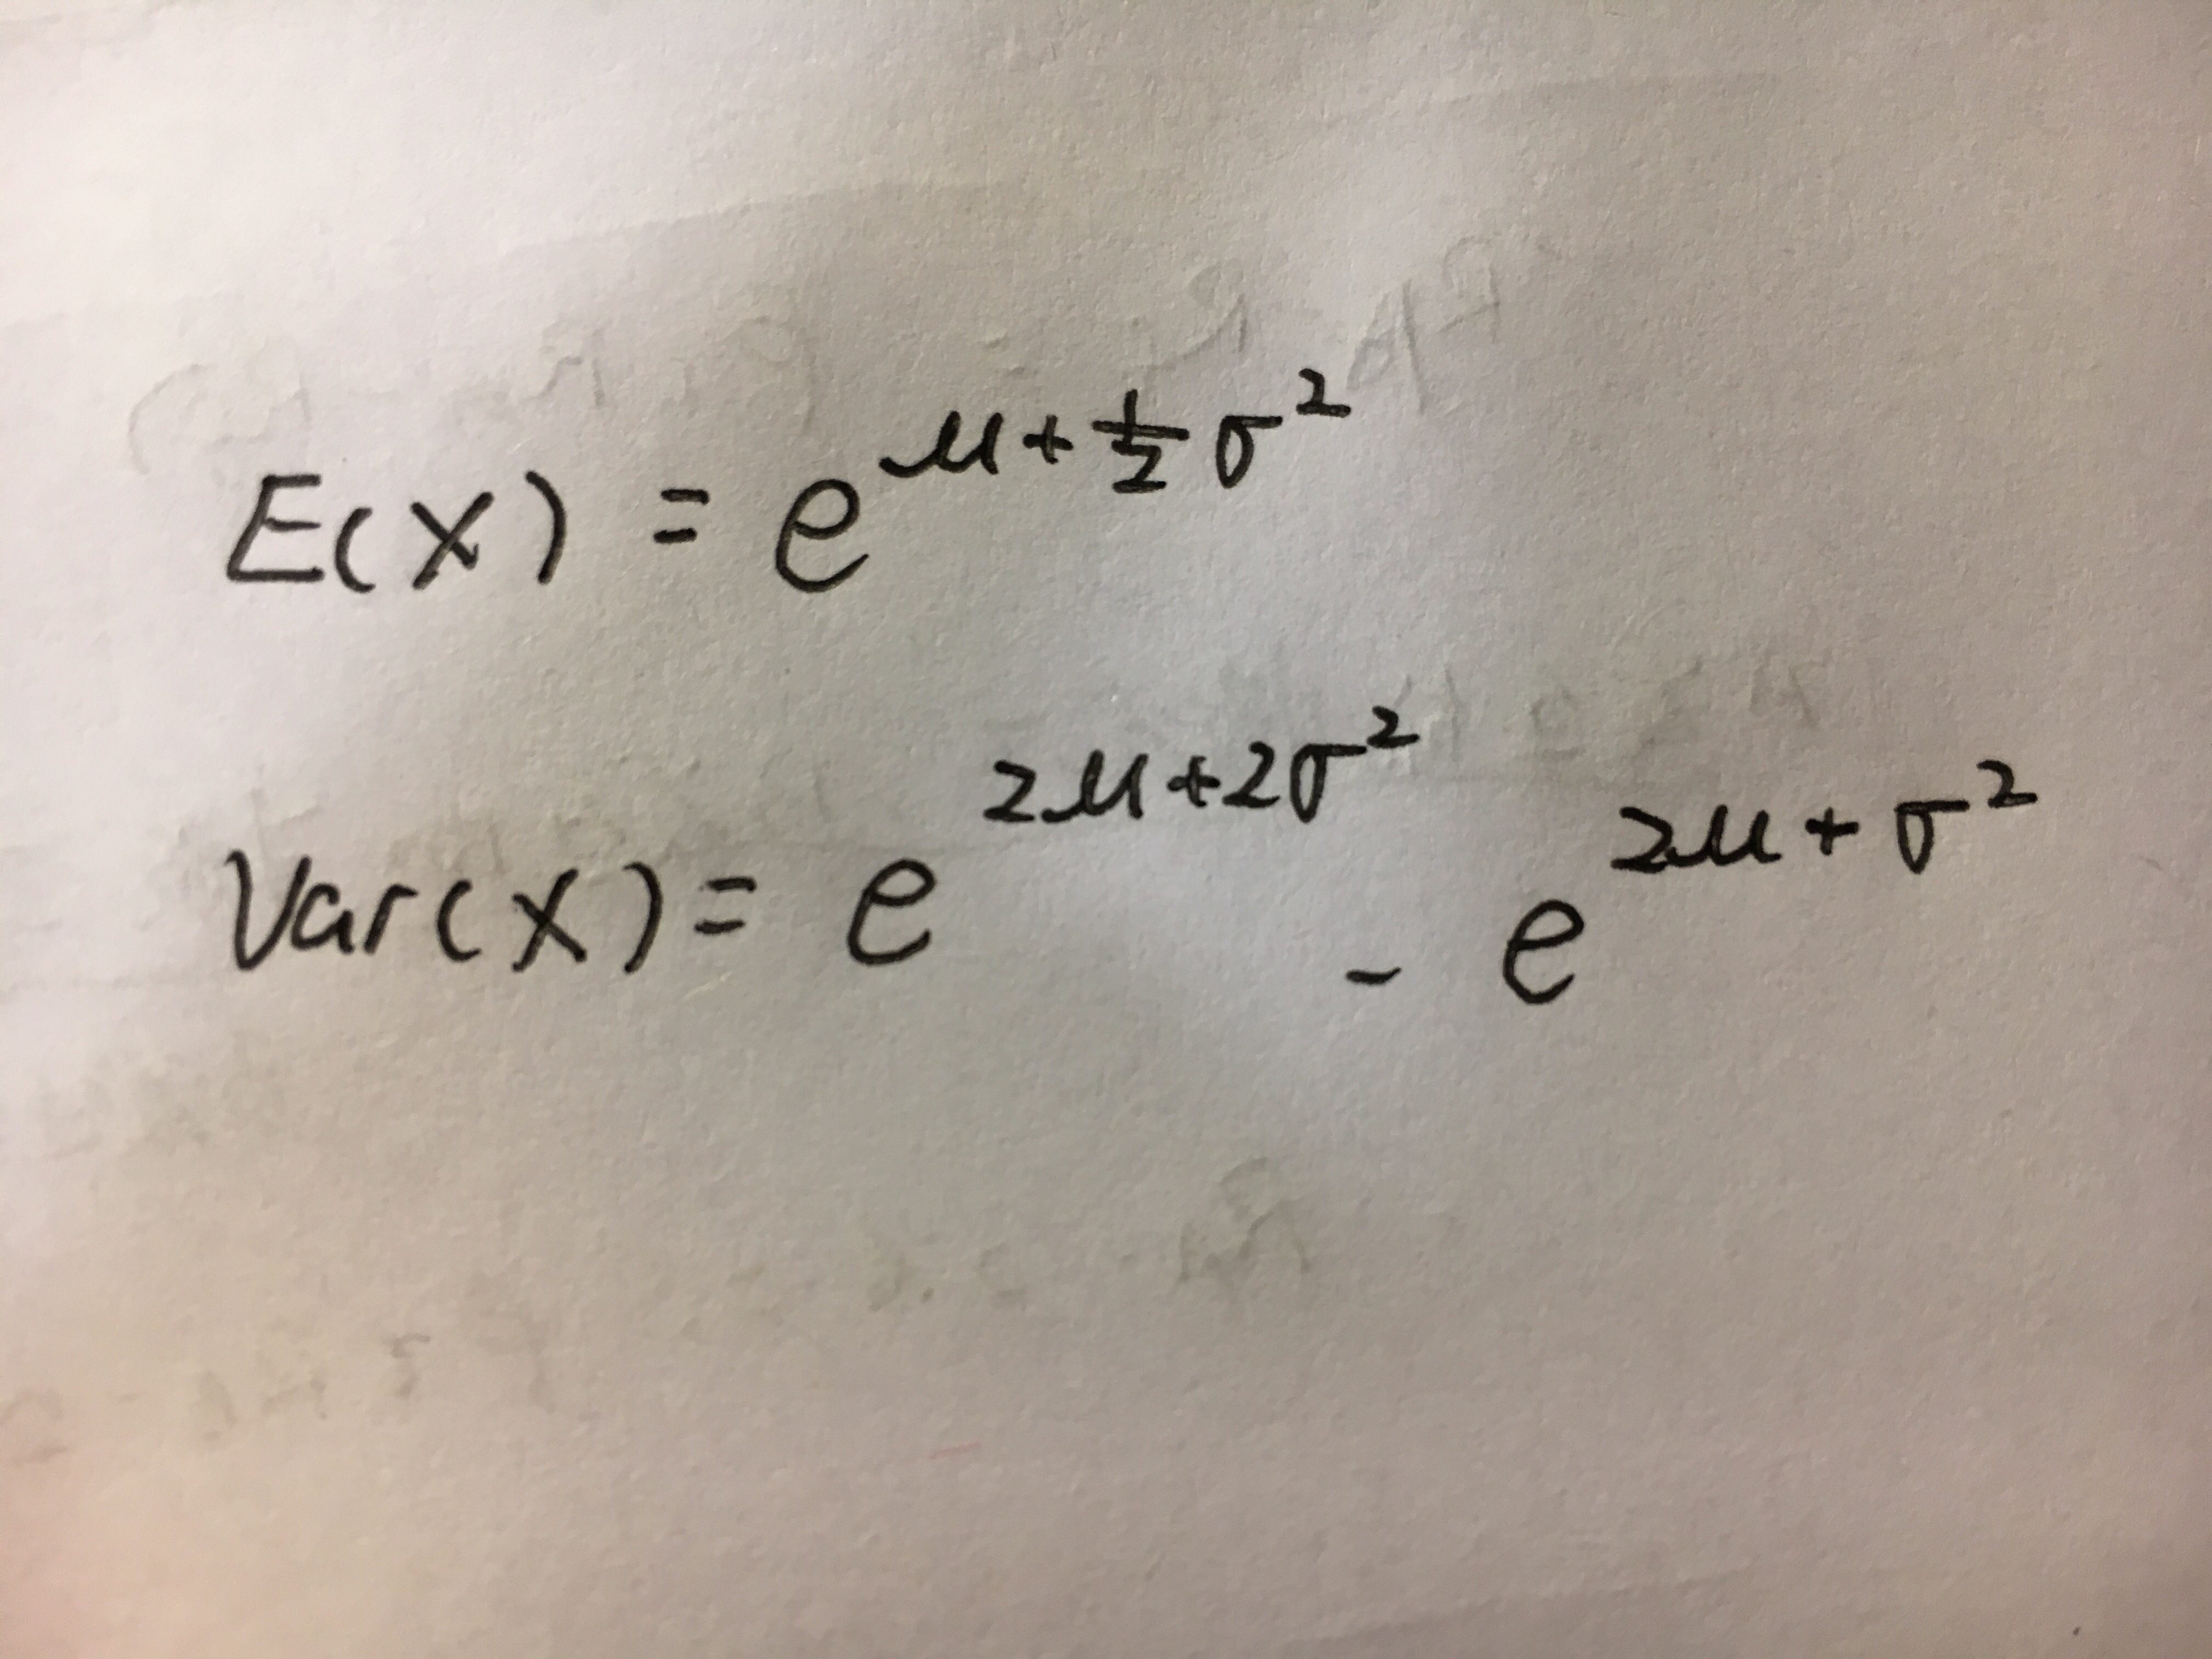 E(x) = e^{μ + ½σ²}
Var(x) = e^{2μ+2σ²} - e^{2μ+σ²}